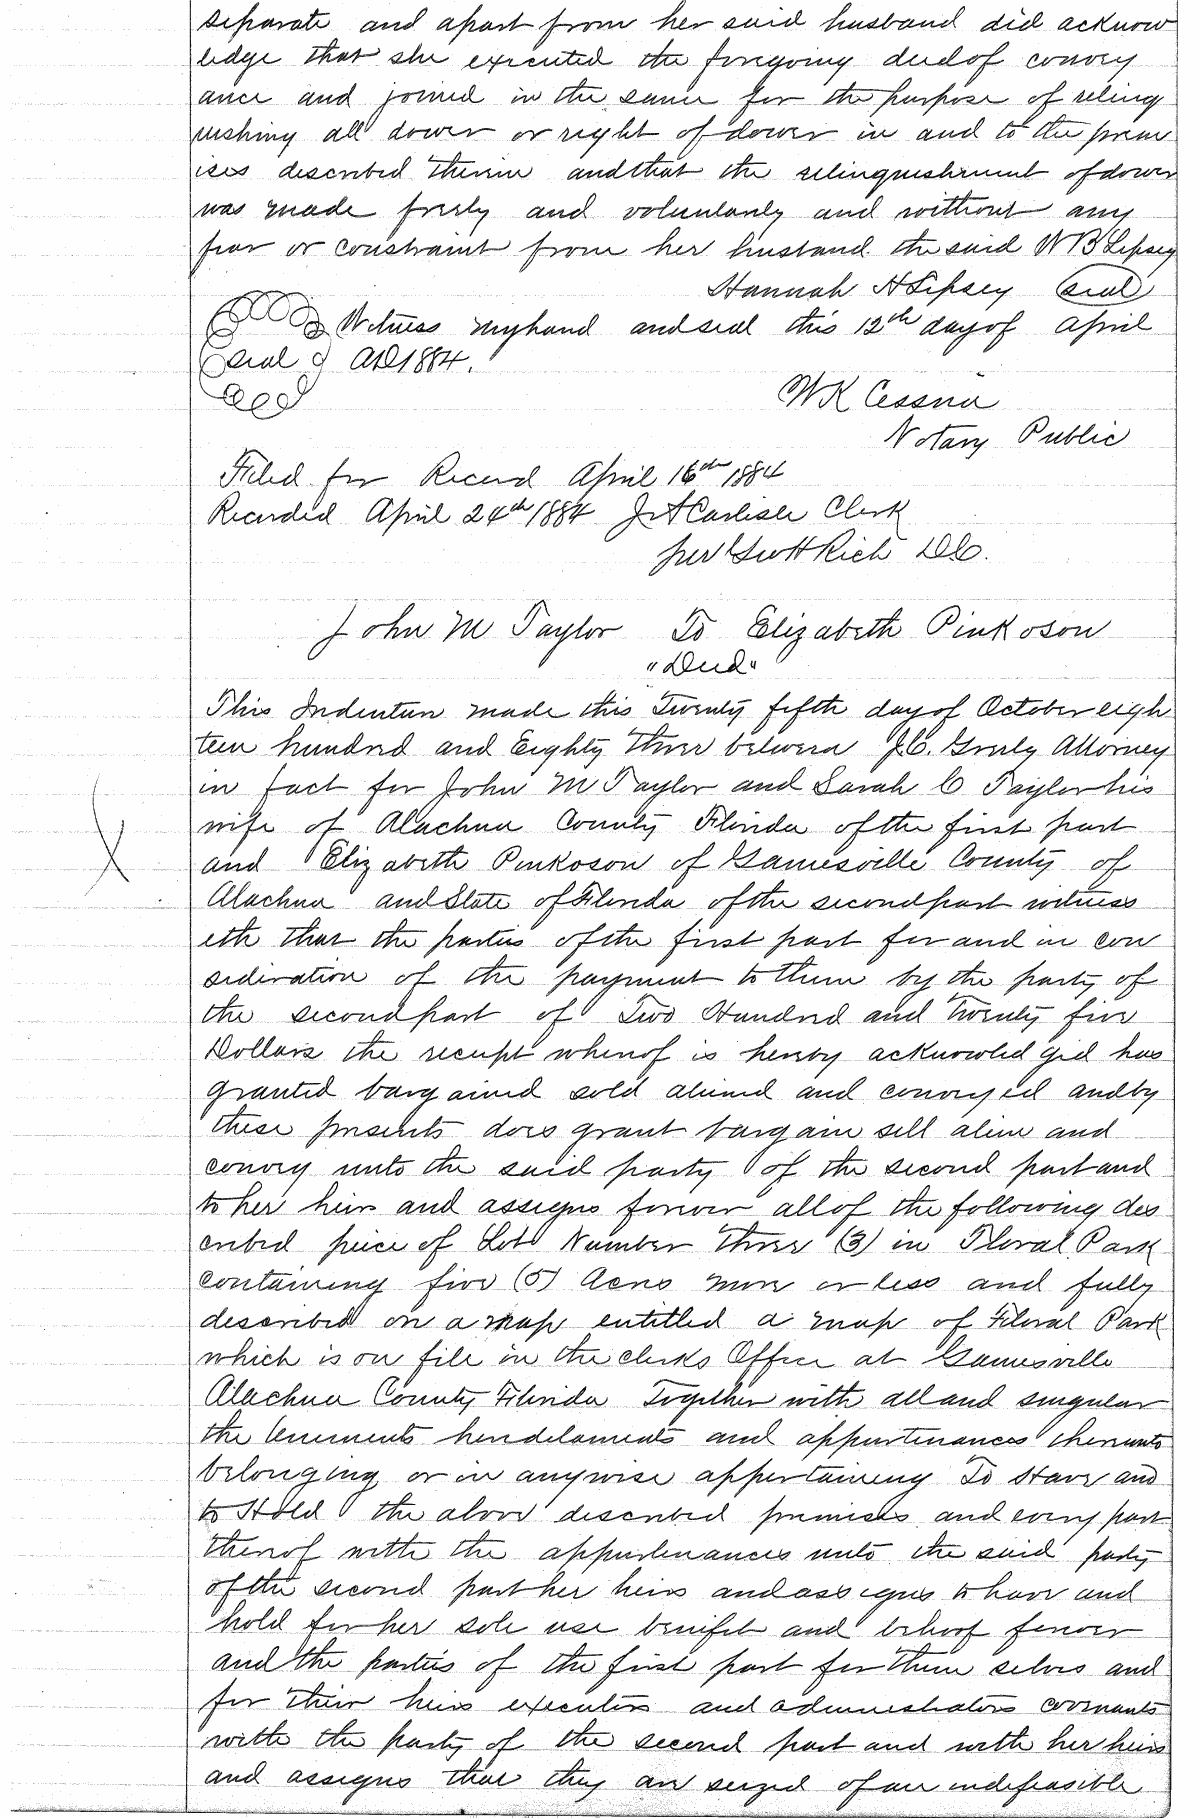 separate and apart from her said husband did acknow
ledge that she executed the foregoing deed of convey
ance and joined in the same for the purpose of relinq
uishing all dower or right of dower in and to the prem
ises described therein and that the relinquishment of dower
was made freely and voluntarily and without any
fear or constraint from her husband the said W B Lipsey
Hannah H Lipsey (seal)
Witness my hand and seal this 12th day of April
seal AD 1884.
W K Cessna
Notary Public
Filed for Record April 16th 1884
Recorded April 24th 1884 J A Carlisle Clerk
per Rich D.C.
John M Taylor To Elizabeth Pinkoson
"Deed"
This Indenture made this Twenty fifth day of October eigh
teen hundred and Eighty Three between J.C. Greely Attorney
in fact for John M Taylor and Sarah C Taylor his
wife of Alachua County Florida of the first part
and Elizabeth Pinkoson of Gainesville County of
Alachua and State of Florida of the second part witness
eth that the parties of the first part for and in con
sideration of the payment to them by the party of
the second part of Two Hundred and Twenty five
Dollars the receipt whereof is hereby acknowledged has
granted bargained sold aliened and conveyed and by
these presents does grant bargain sell alien and
convey unto the said party of the second part and
to her heirs and assigns forever all of the following des
cribed piece of Lot Number Three (3) in Floral Park
containing five (5) Acres more or less and fully
described on a map entitled a map of Floral Park
which is on file in the clerks Office at Gainesville
Alachua County Florida Together with all and singular
the tenements hereditaments and appurtenances thereunto
belonging or in anywise appertaining To Have and
to Hold the above described premises and every part
thereof with the appurtenances unto the said party
of the second part her heirs and assigns to have and
hold for her sole use benifit and behoof forever
and the parties of the first part for them selves and
for their heirs executors and administrators covenants
with the party of the second part and with her heirs
and assigns that they are seized of an indefeasible